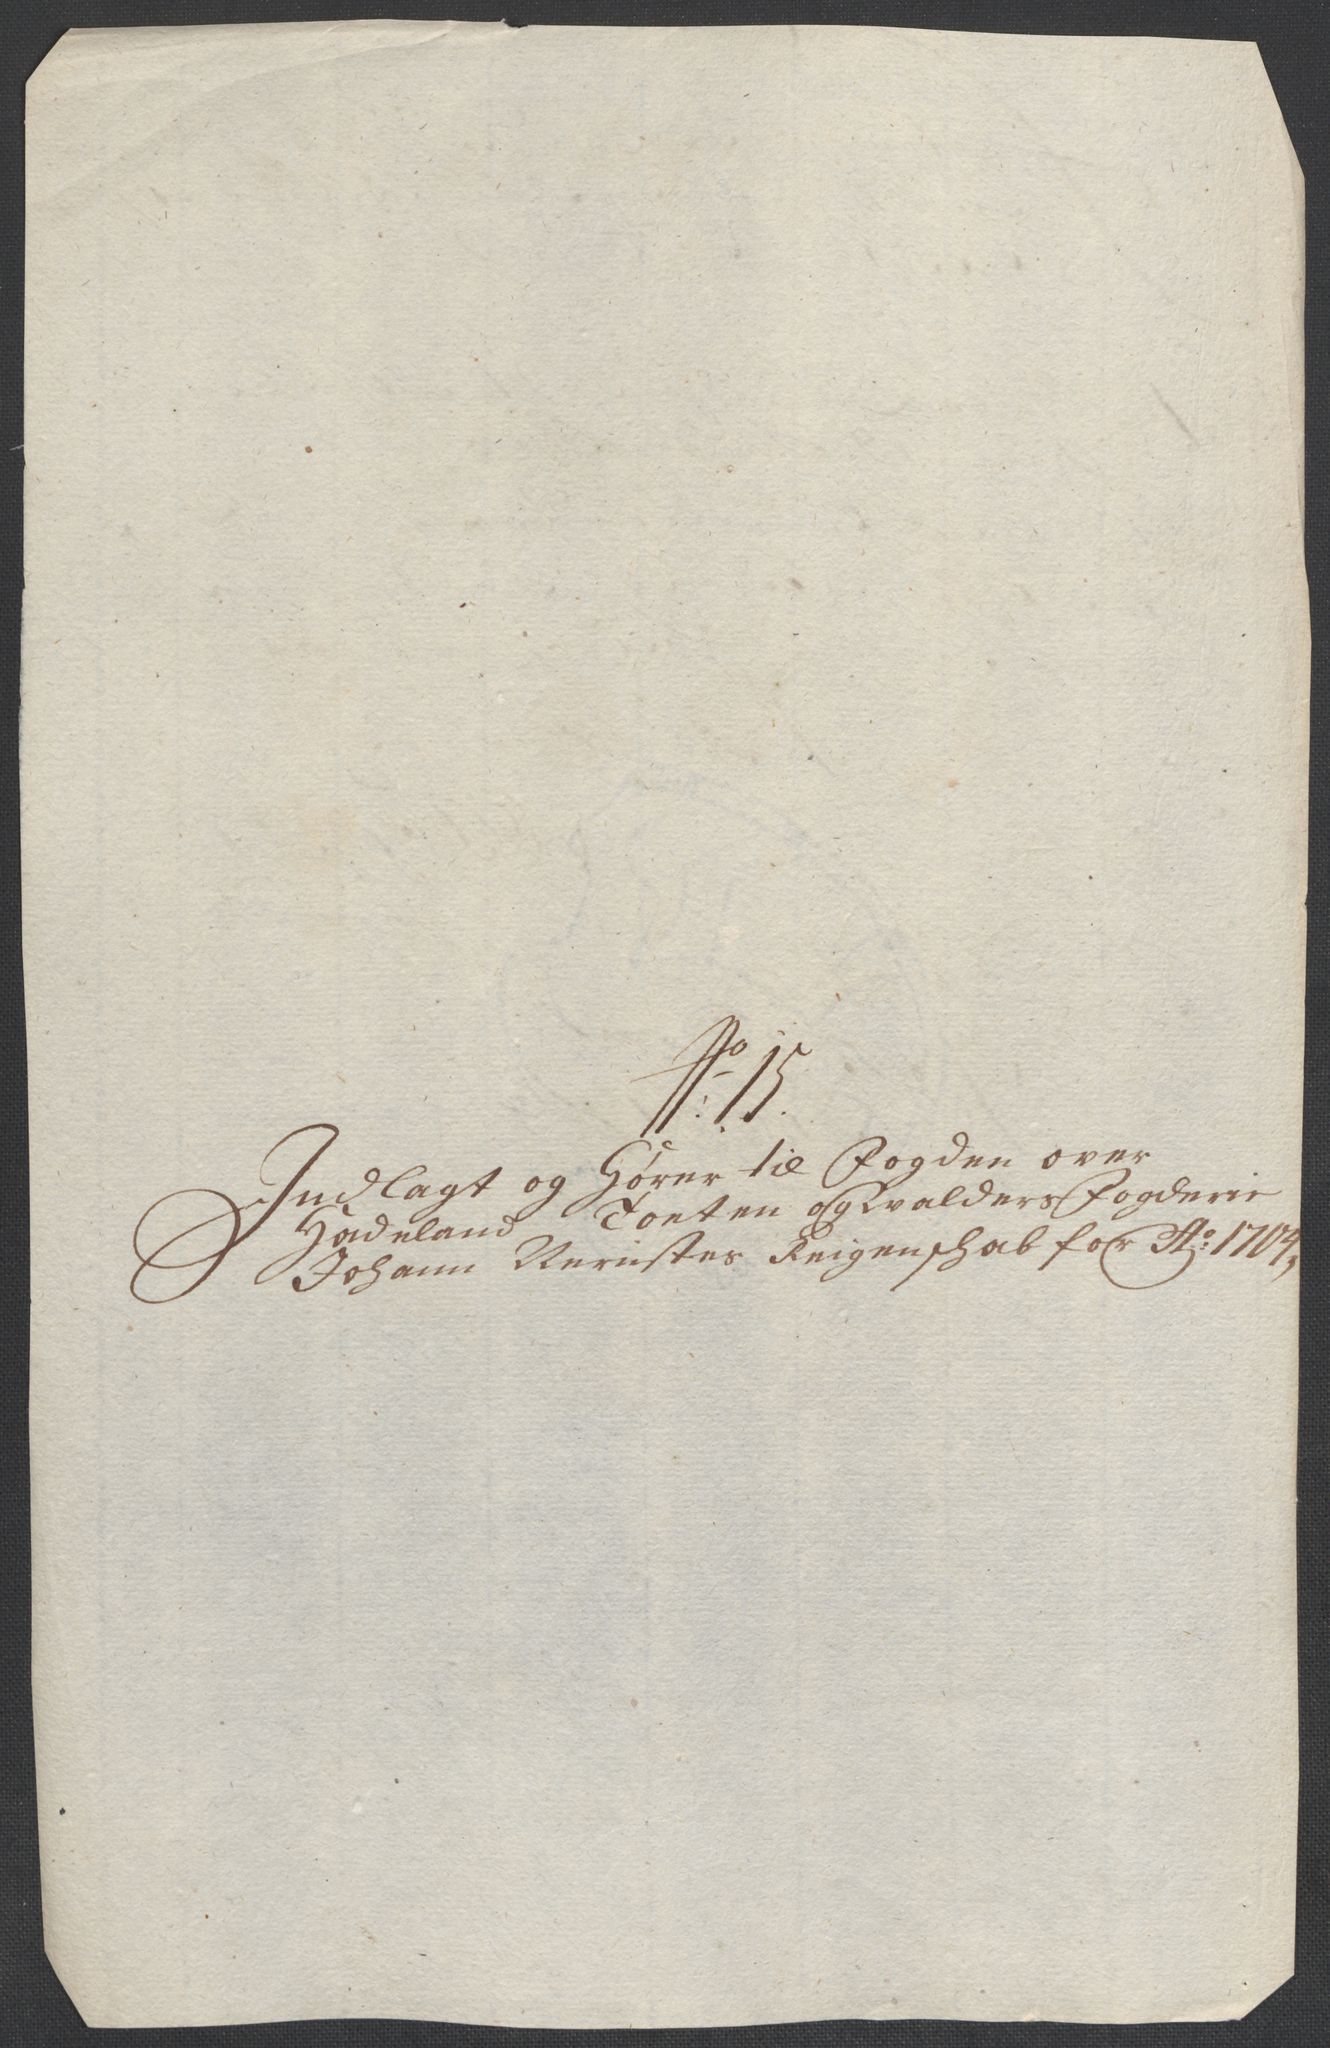 No: 15.
Indlagt og Hører til Fogden over
Hadeland Toeten og Valders Fogderie
Johann Rernstes Reigenschab for Ao: 1704,